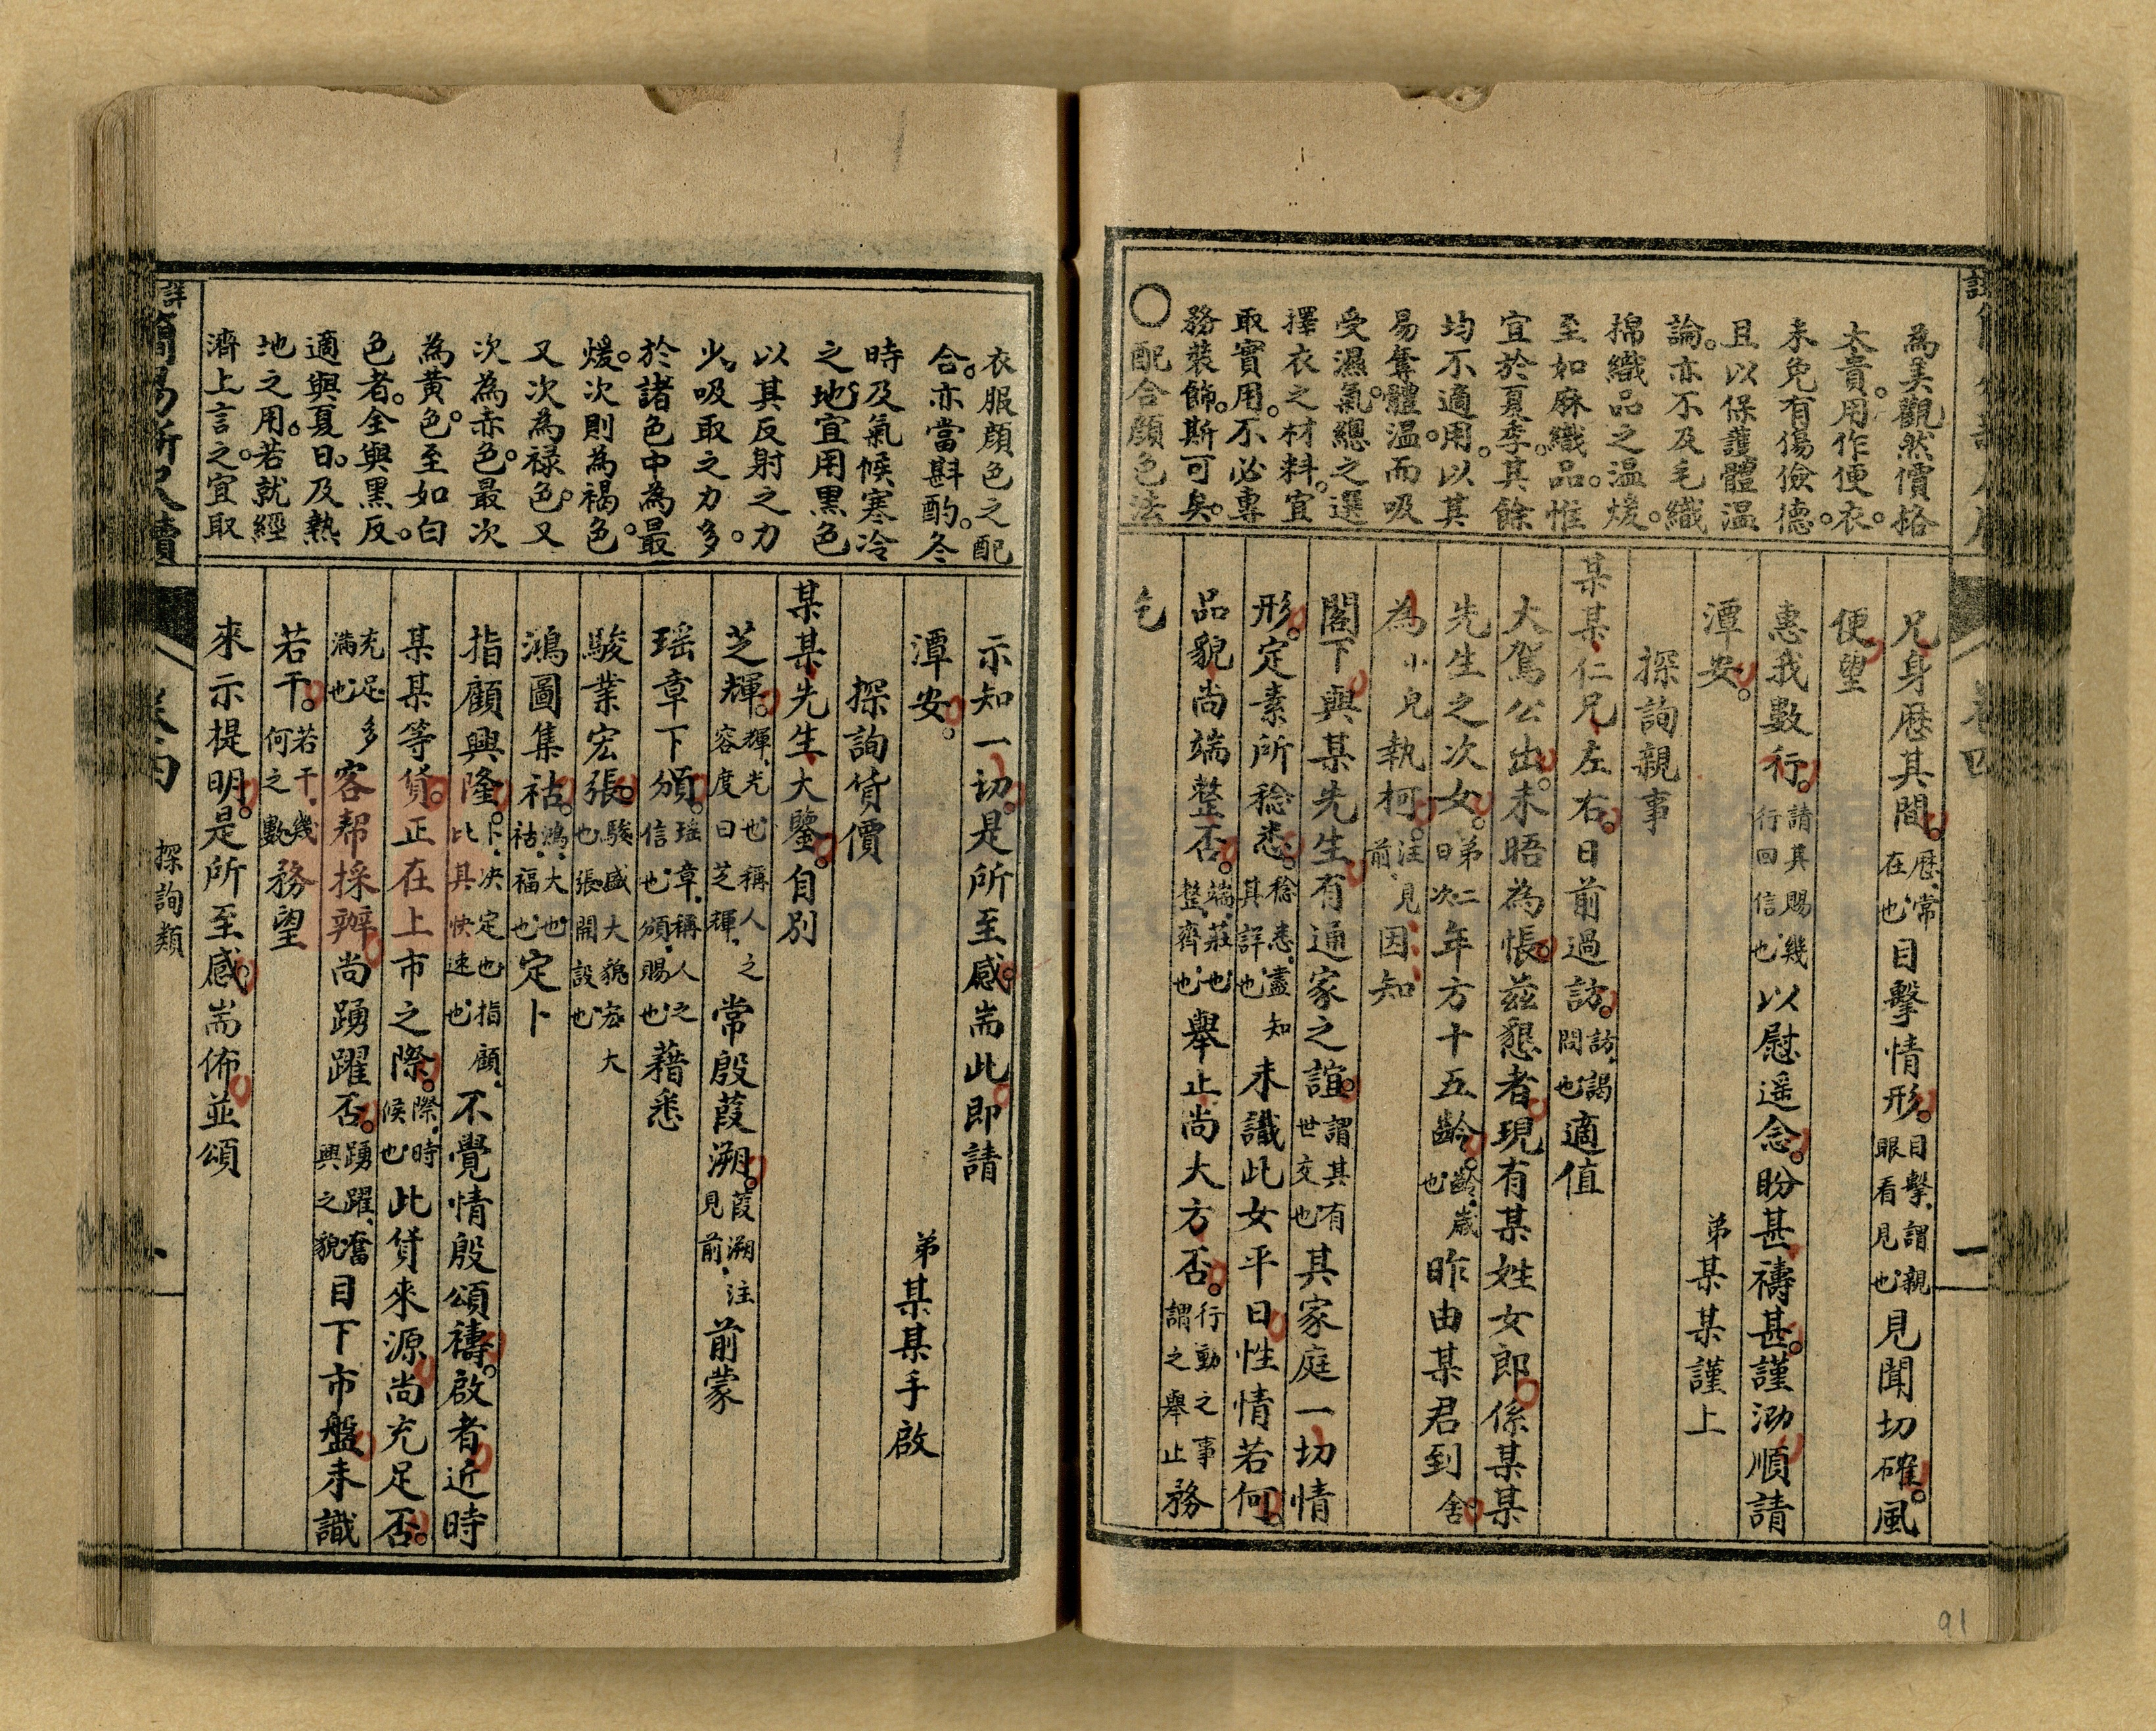 為美觀然價格
太貴。用作便衣。
未免有傷儉德。
且以保護體溫
論。亦不及毛織
棉織品之溫煖。
至如麻織品。惟
宜於夏季。其餘
均不適用。以其
易奪體溫而吸
受濕氣。總之選
擇衣之材料。宜
取實用。不必專
務裝飾。斯可矣。
○配合顏色法
兄身歷其間。歷、常在也、目擊情形。目擊、謂親眼看見也、見聞切確。風
便望
惠我數行。請其賜幾行回信也、以慰遥念。盼甚禱甚。謹泐順請
潭安。
弟某某謹上
探詢親事
某某仁兄左右。日前過訪。訪、謁問也、適值
大駕公出。未晤為悵。茲懇者現有某姓女郎係某某
先生之次女。第二曰次、年方十五齡。齡、歲也、昨由某君到舍
為小兒執柯。注見前、因知
閣下與某先生有通家之誼。謂其有世交也、其家庭一切情
形。定素所稔悉。稔悉、盡知其詳也、未識此女平日性情若何。
品貌尚端整否。端、莊也、整、齊也、舉止尚大方否。行動之事謂之舉止、務
乞
卷四
衣服顏色之配
合。亦當斟酌。冬
時及氣候寒冷
之地宜用黑色
以其反射之力
少。吸取之力多。
於諸色中為最
煖。次則為褐色。
又次為禄色。又
次為赤色。最次
為黄色。至如白
色者。全與黑反。
適與夏日。及熱
地之用。若就經
濟上言之。宜取
示知一切。是所至感。耑此即請
潭安。
弟某某手啟
探詢貨價
某某先生大鑒。自別
芝輝。輝、光也稱人之容度曰芝輝、常殷葭溯。葭溯、注見前、前蒙
瑶章下頒。瑶章、稱人之信也、頒、賜也、藉悉
駿業宏張。駿、盛大貌宏、大也、張、開設也、
鴻圖集祜。鴻、大也、祜、福也、定卜
指顧興隆。卜、决定也指顧、比其快速也、不覺情殷頌禱。啟者近時
某某等貨。正在上市之際。際、時候也、此貨來源尚充足否。
充足、多满也、客帮採辦尚踴躍否。踴躍、奮興之貌、目下市盤未識
若干。若干、幾何之數、務望
來示提明。是所至感。耑佈並頌
簡易新尺牘
探詢類
91